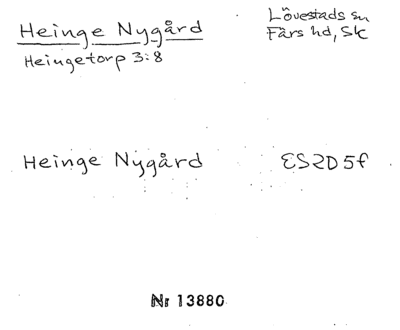 Heinge Nygård
Heingetorp 3:8
Lövestads sn
Färs hd, Sk
Heinge Nygård
ES2D5f
Nr 13880